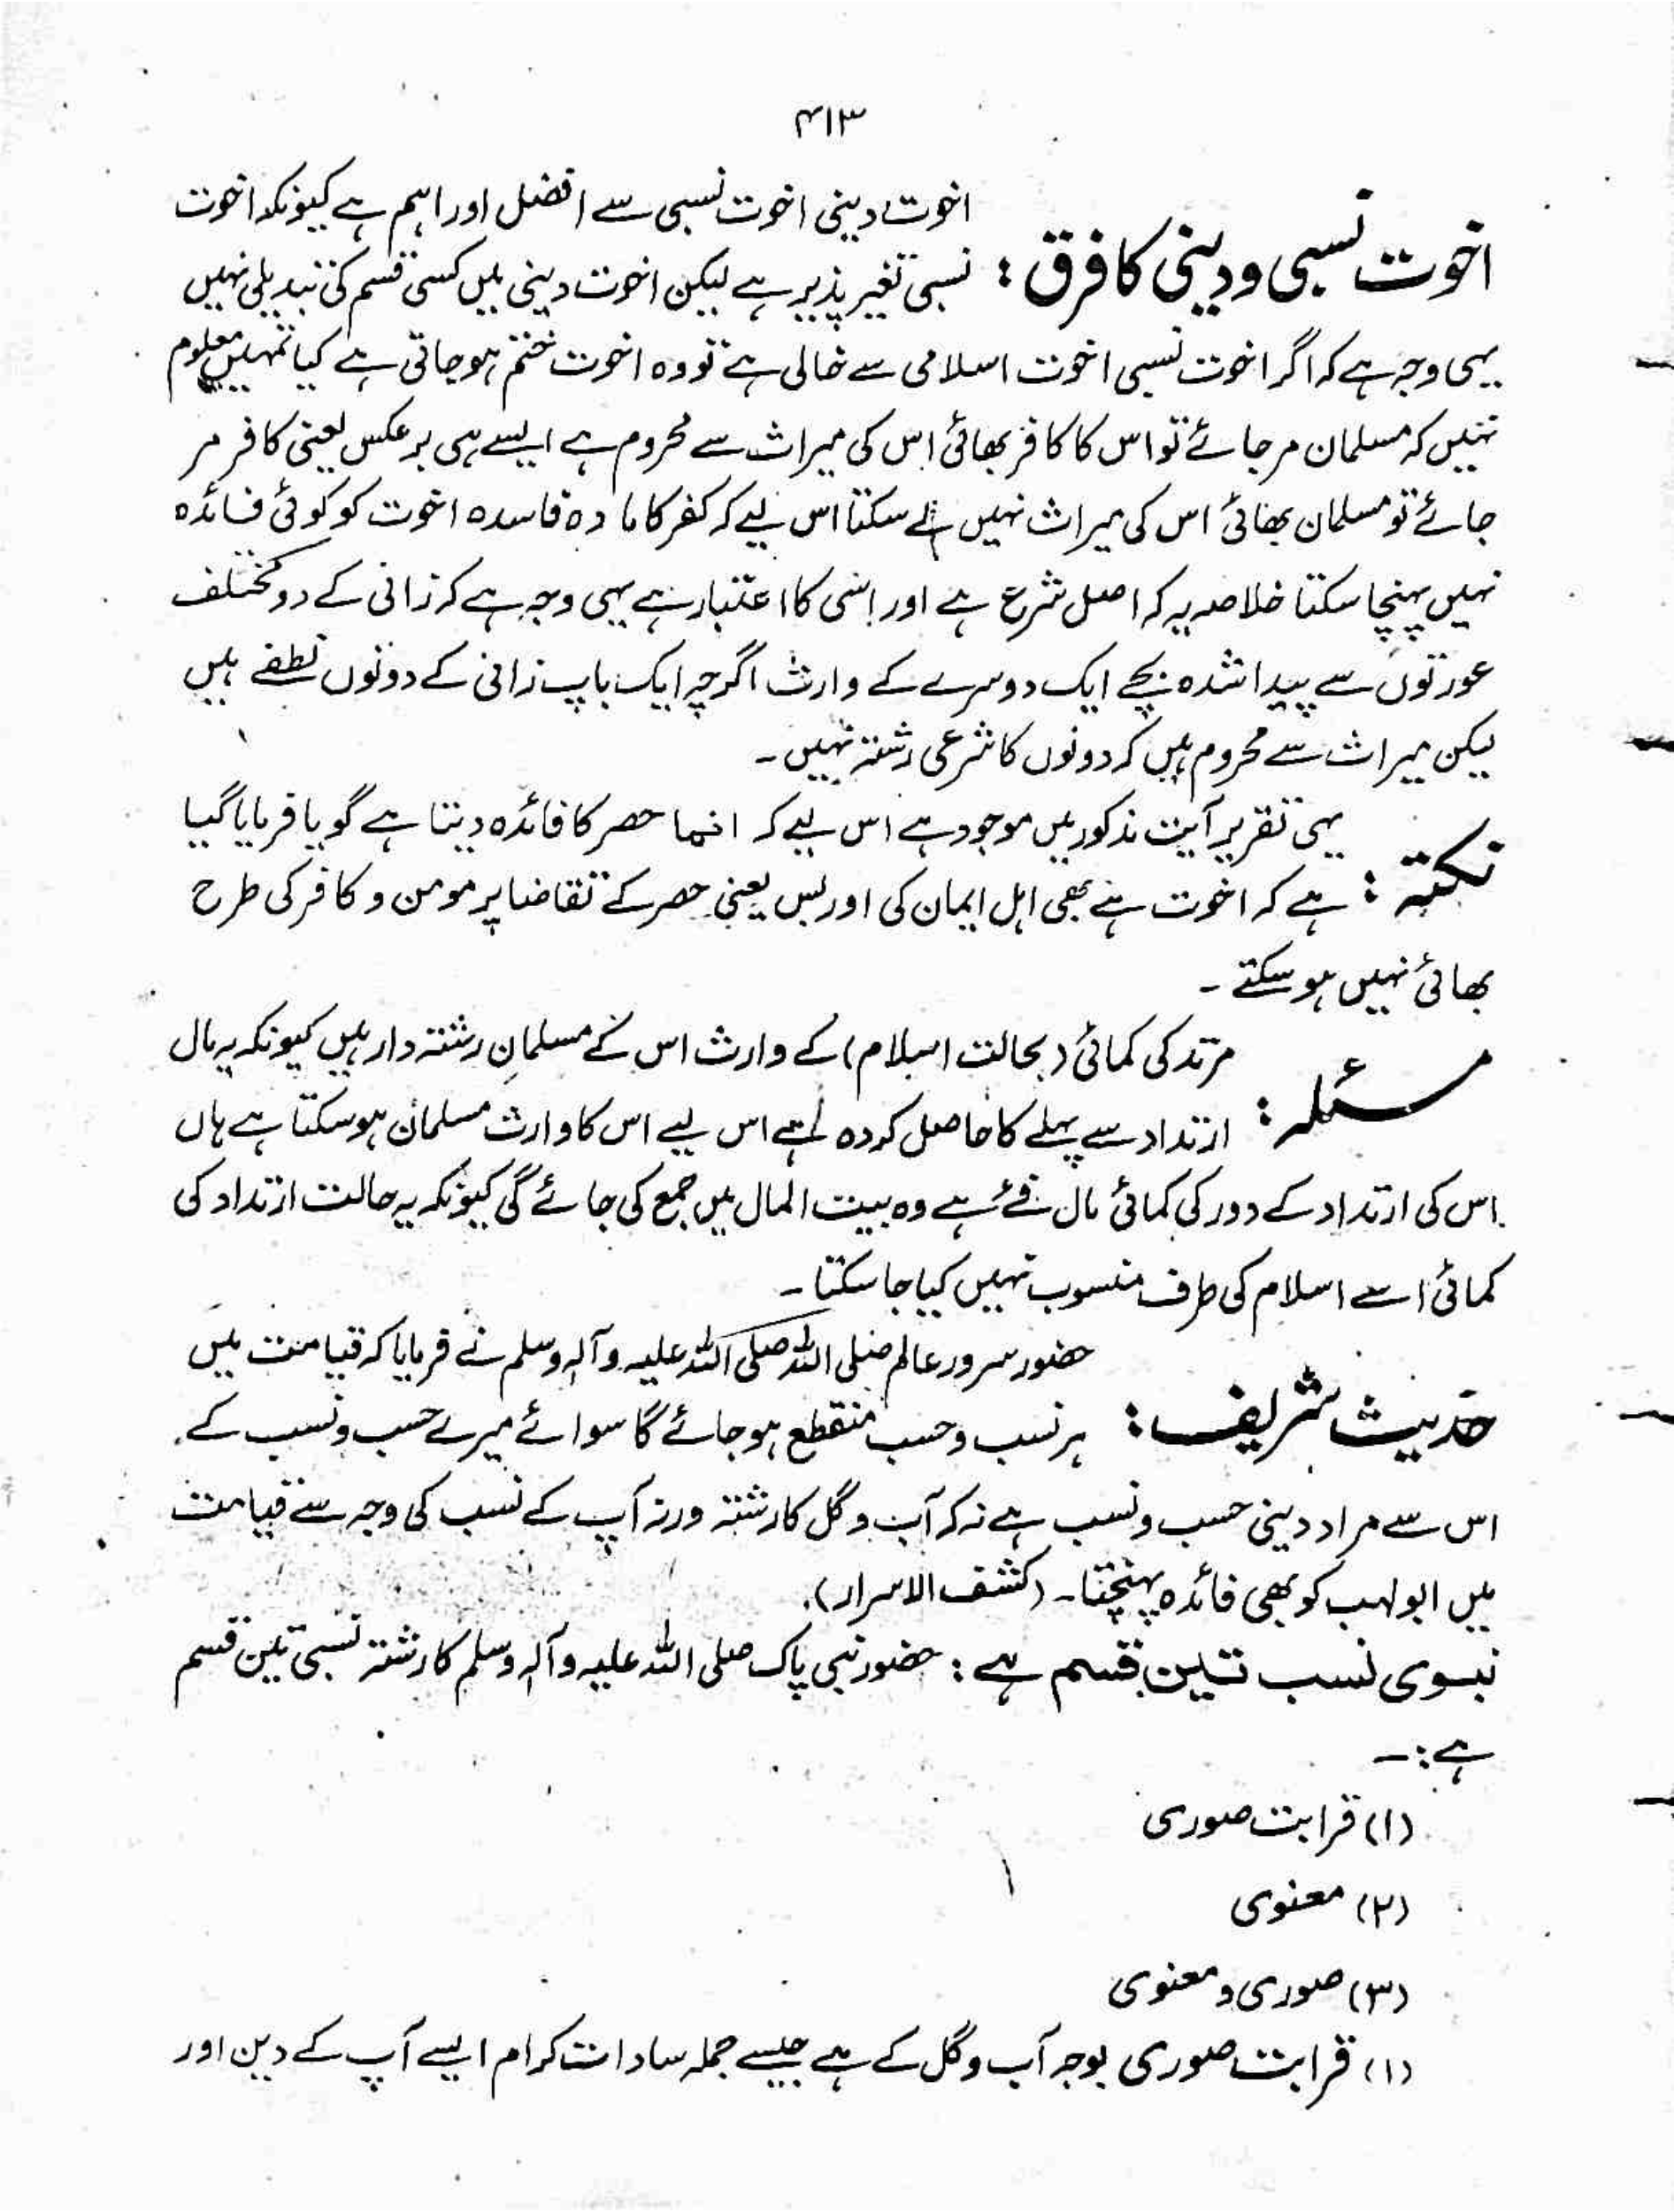 ۴۱۳
اخوت نسبی و دینی کا فرق : اخوت دینی اخوت نسبی سے افضل اور اہم ہے کیونکہ اخوت
نسبی تغیر پذیر ہے لیکن اخوت دینی میں کسی قسم کی تبدیلی نہیں
یہی وجہ ہے کہ اگر اخوت نسبی اخوت اسلامی سے خالی ہے تو وہ اخوت ختم ہو جاتی ہے کیا تمہیں معلوم
نہیں کہ مسلمان مر جائے تو اس کا کافر بھائی اس کی میراث سے محروم ہے ایسے ہی برعکس یعنی کافر مر
جائے تو مسلمان بھائی اس کی میراث نہیں لے سکتا اس لیے کہ کفر کا مادہ فاسدہ اخوت کو کوئی فائدہ
نہیں پہنچا سکتا خلاصہ یہ کہ اصل شرع ہے اور اسی کا اعتبار ہے یہی وجہ ہے کہ زانی کے دو مختلف
عورتوں سے پیدا شدہ بچے ایک دوسرے کے وارث اگرچہ ایک باپ زانی کے دونوں نطفے ہیں
لیکن میراث سے محروم ہیں کہ دونوں کا شرعی رشتہ نہیں ۔
نکتہ : یہی تقریر آیت مذکور میں موجود ہے اس لیے کہ انما حصر کا فائدہ دیتا ہے گویا فرمایا گیا
ہے کہ اخوت ہے بھی اہل ایمان کی اور بس یعنی حصر کے تقاضا پر مومن و کافر کی طرح
بھائی نہیں ہو سکتے ۔
مسئلہ : مرتد کی کمائی (بحالت اسلام) کے وارث اس کے مسلمان رشتہ دار ہیں کیونکہ یہ مال
ارتداد سے پہلے کا حاصل کردہ ہے اس لیے اس کا وارث مسلمان ہو سکتا ہے ہاں
اس کی ارتداد کے دور کی کمائی مال فئے ہے وہ بیت المال میں جمع کی جائے گی کیونکہ یہ حالت ارتداد کی
کمائی اسے اسلام کی طرف منسوب نہیں کیا جا سکتا ۔
حدیث شریف : حضور سرور عالم صلی اللہ صلی اللہ علیہ وآلہ وسلم نے فرمایا کہ قیامت میں
ہر نسب و حسب منقطع ہو جائے گا سوائے میرے حسب و نسب کے ۔
اس سے مراد دینی حسب و نسب ہے نہ کہ آب و گل کا رشتہ ورنہ آپ کے نسب کی وجہ سے قیامت
میں ابولہب کو بھی فائدہ پہنچتا ۔ (کشف الاسرار) ۔
نبوی نسب تین قسم ہے : حضور نبی پاک صلی اللہ علیہ وآلہ وسلم کا رشتہ نسبی تین قسم
ہے :۔
(۱) قرابت صوری
(۲) معنوی
(۳) صوری و معنوی
(۱) قرابت صوری بوجہ آب و گل کے ہے جیسے جملہ سادات کرام ایسے آپ کے دین اور